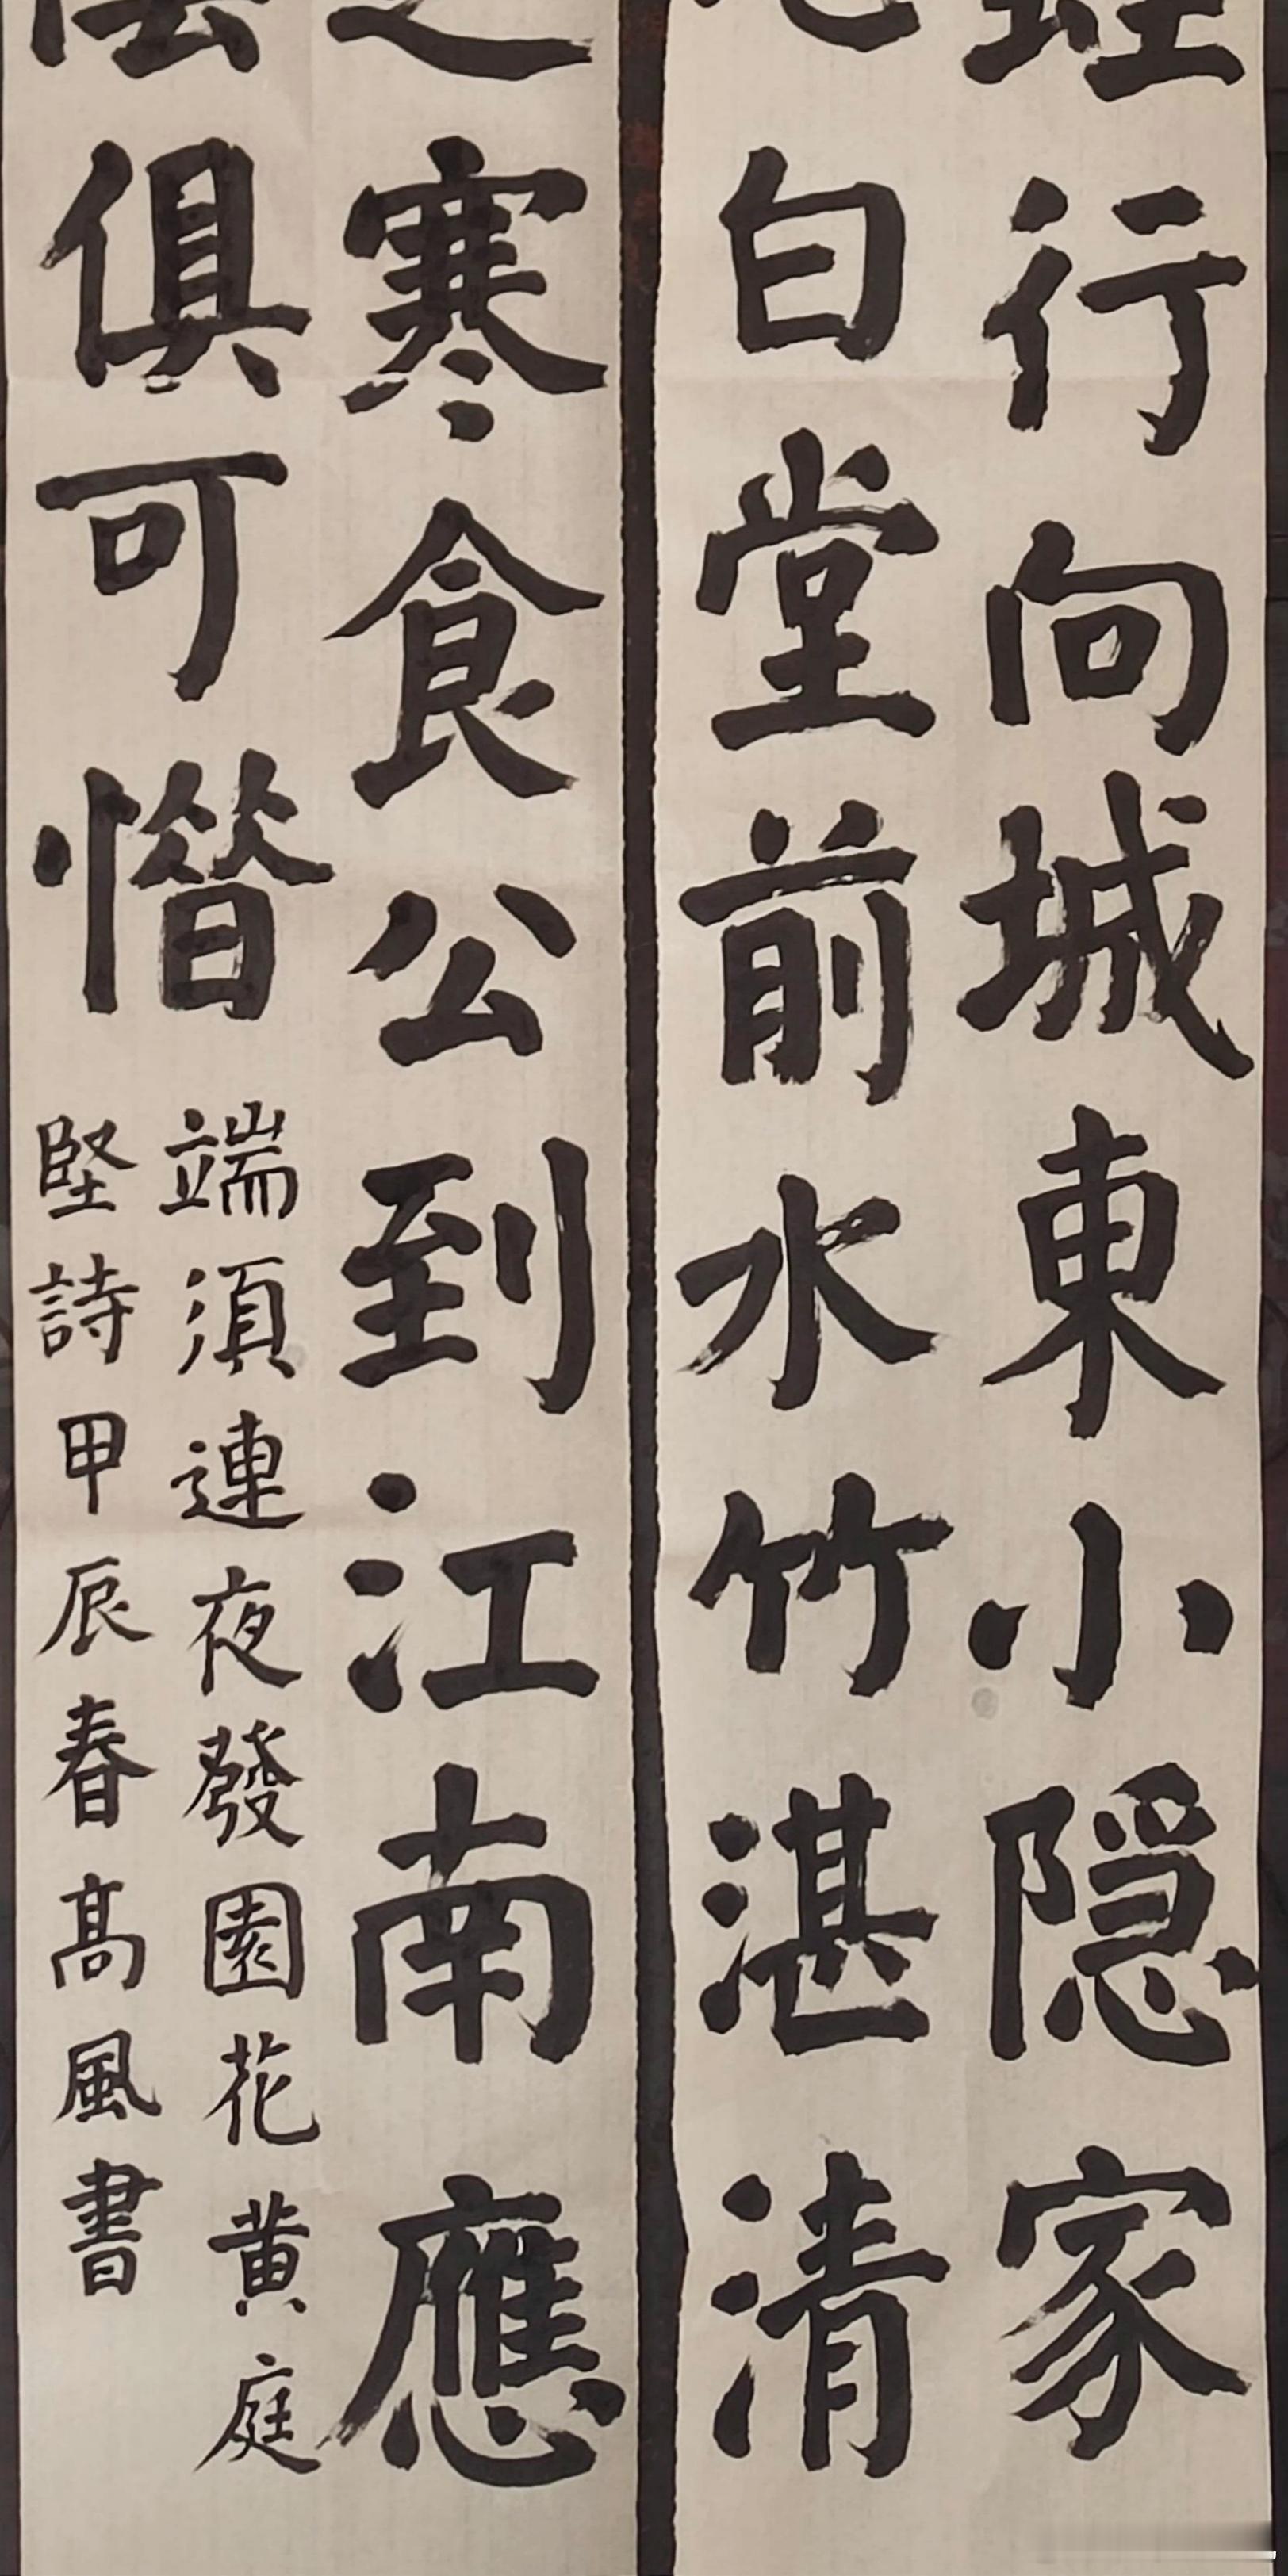 行向城東小隐家
白堂前水竹湛清
寒食公到江南應
俱可惜
端須連夜發園花黄庭
堅詩甲辰春髙風書